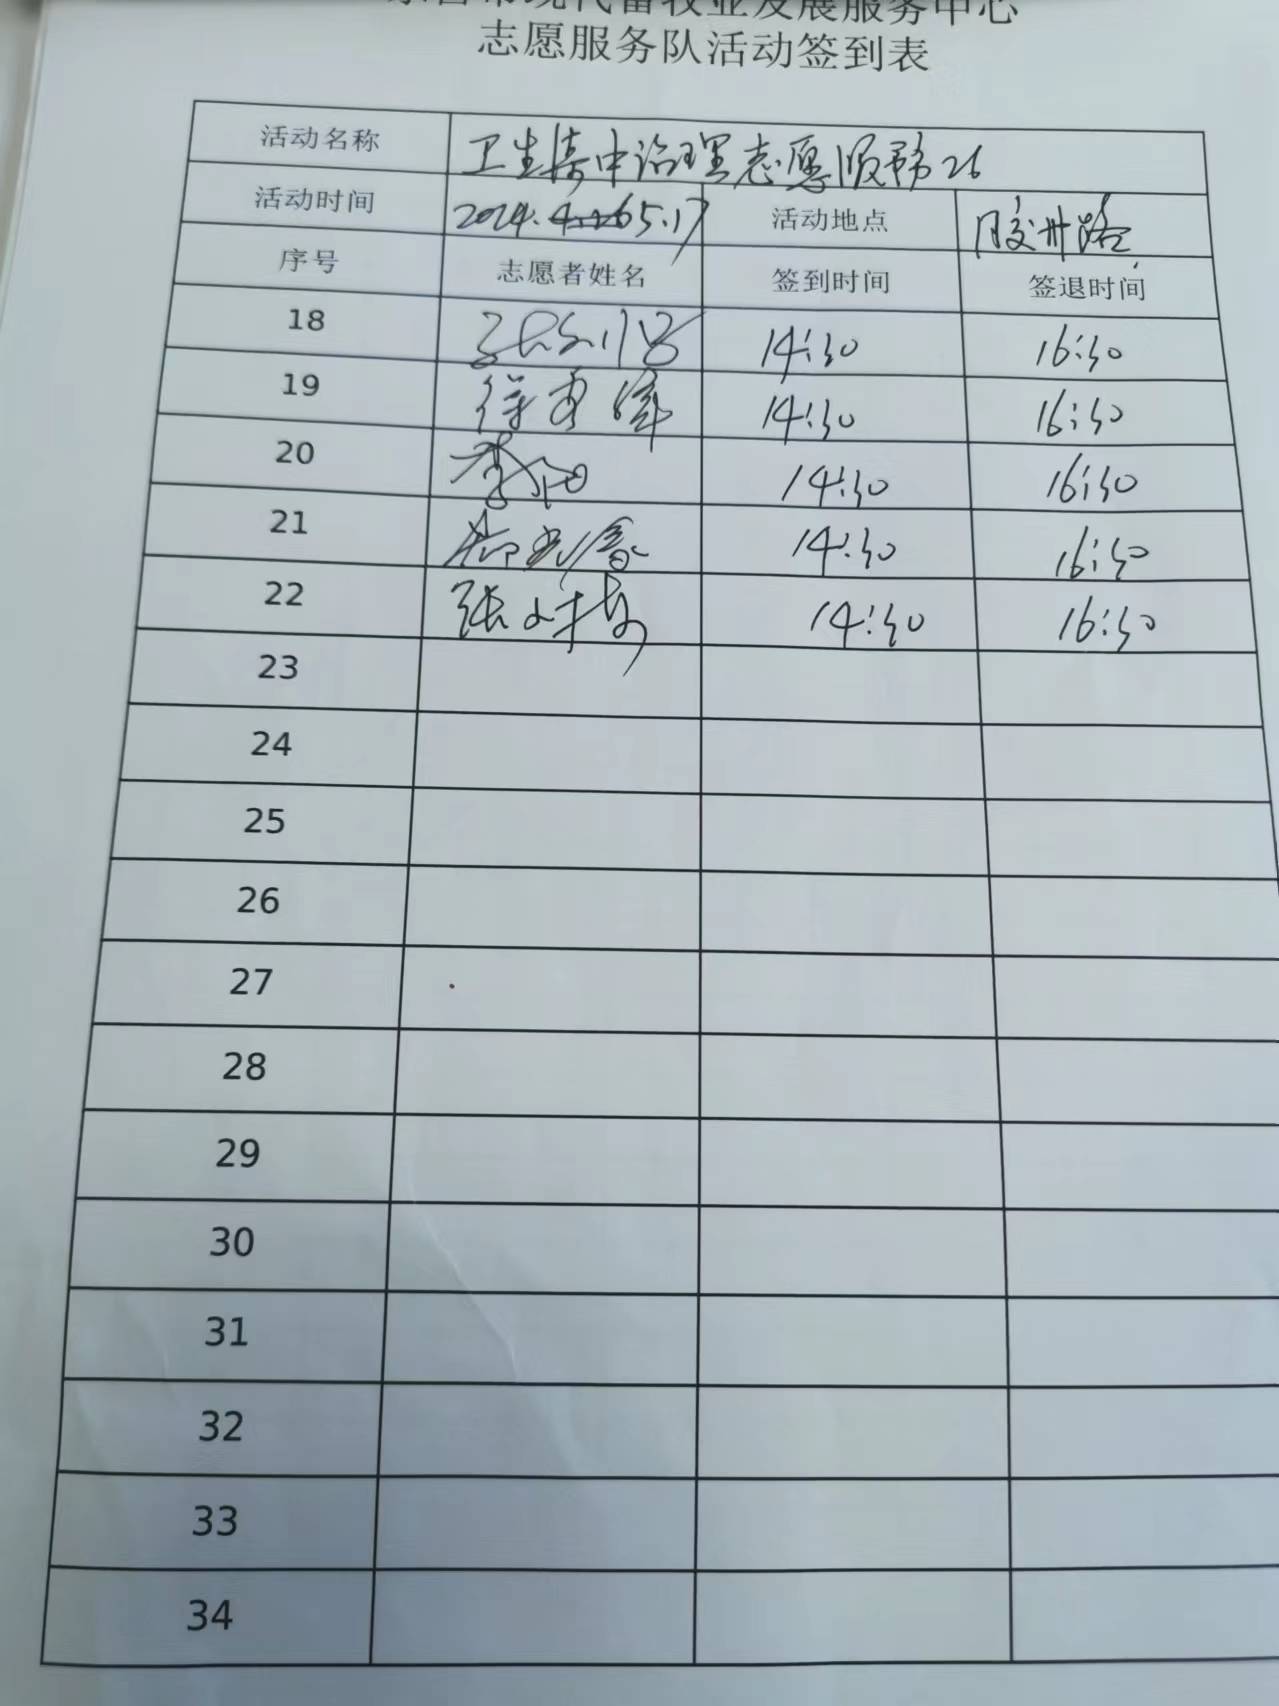 市现代畜牧业发展服务中心
志愿服务队活动签到表
活动名称 卫生集中治理志愿服务26
活动时间 2024. 5.17 活动地点 胶州路
序号 志愿者姓名 签到时间 签退时间
18 14:30 16:30
19 14:30 16:30
20 李阳 14:30 16:30
21 14:30 16:30
22 张 14:30 16:30
23
24
25
26
27
28
29
30
31
32
33
34